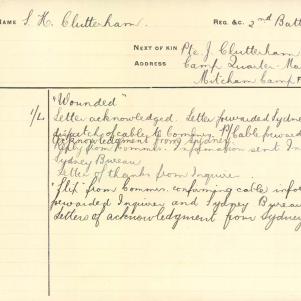 NAME S. H. Clutterham REG. &c. 2nd Batt
NEXT OF KIN Pte J. Clutterham
ADDRESS Camp Quarter-Ma
Mitcham Camp
"Wounded"
Letter acknowledged. Letter forwarded Sydney
dispatch of cables to Commr. Cable forwarded
acknowledgment from Sydney.
Reply from Commr. Information sent In
Sydney Bureau
Letter of thanks from Inquirer.
"Slip" from Commr. confirming cable infor
forwarded Inquirer and Sydney Bureau
Letters of acknowledgment from Sydney